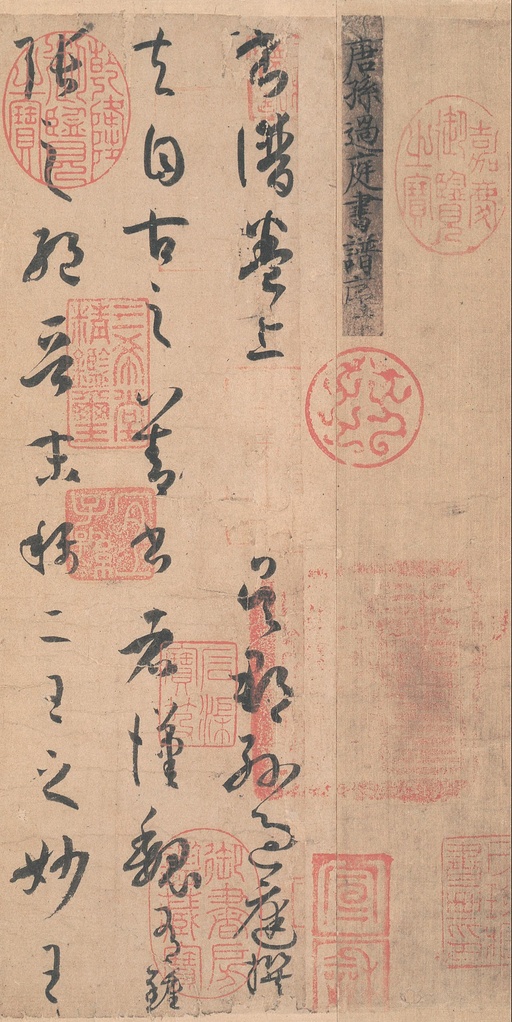 嘉慶御覽之寶
唐孫過庭書譜序
書譜卷上 吳郡孫過庭撰
夫自古之善書者漢魏有鍾
張之絕晉末稱二王之妙王
宣和
石渠寶笈
三希堂精鑑璽
宜子孫
乾隆御覽之寶